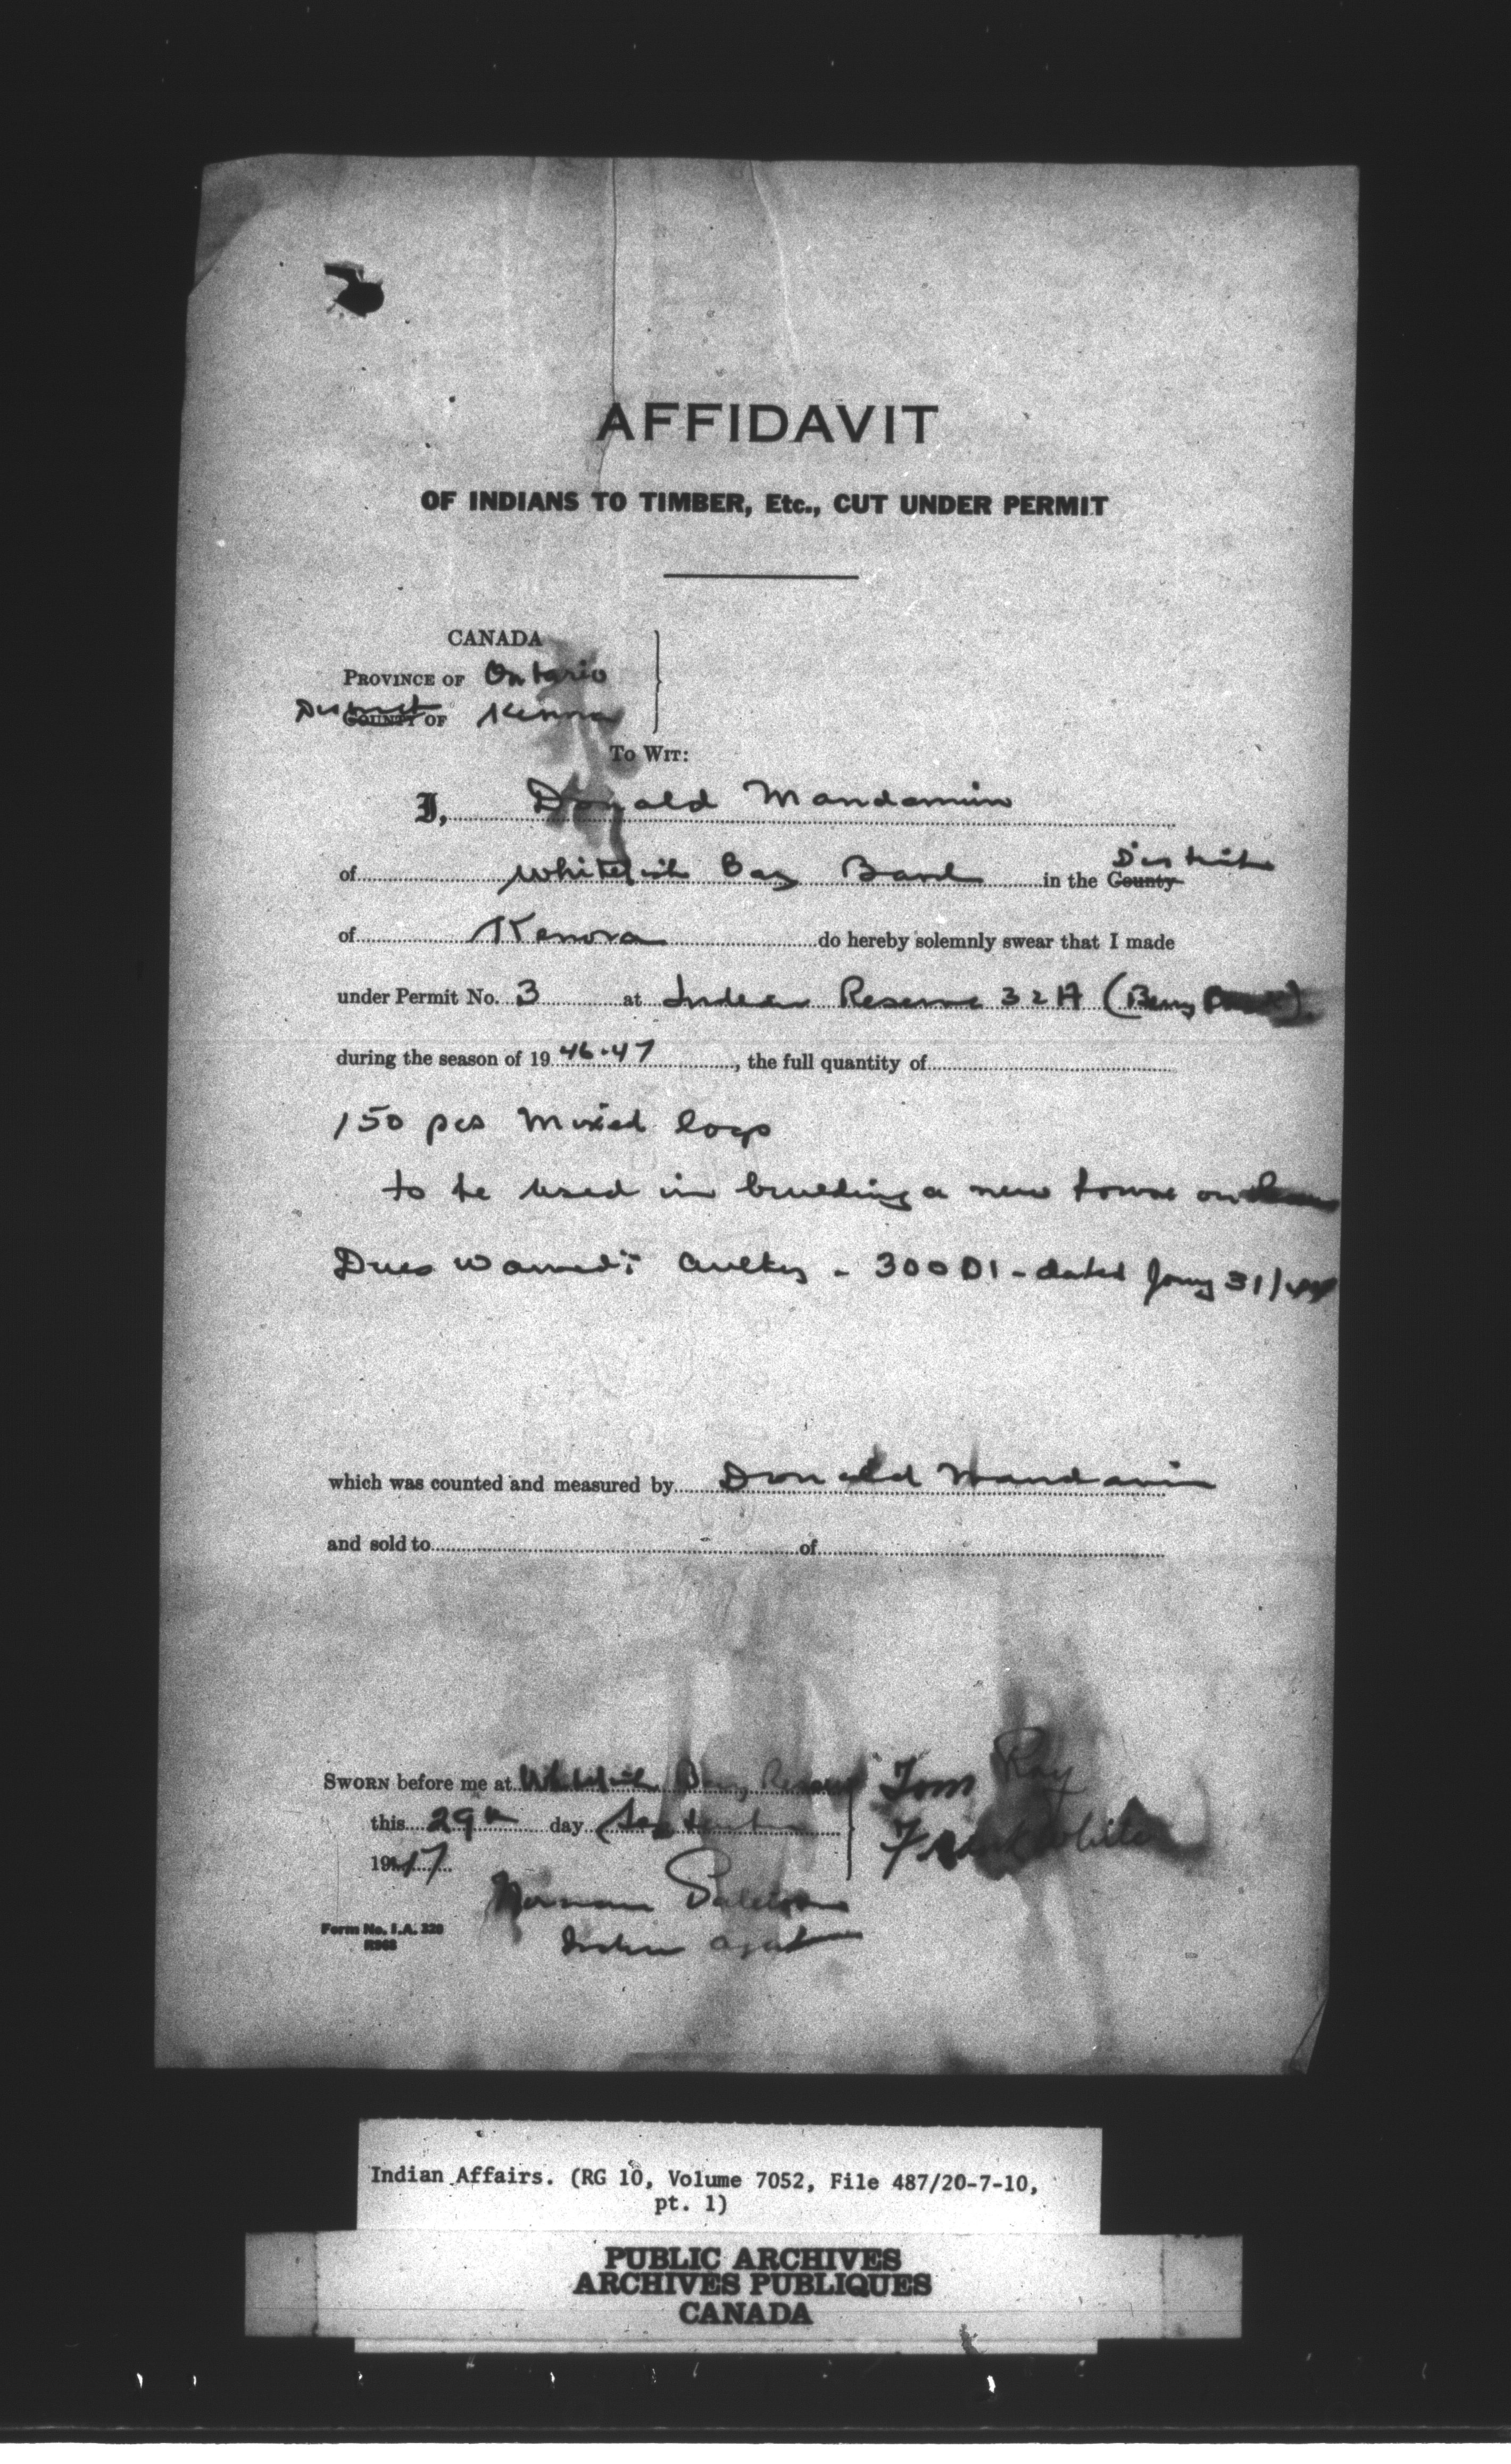 AFFIDAVIT
OF INDIANS TO TIMBER, Etc., CUT UNDER PERMIT
CANADA
PROVINCE OF Ontario
District COUNTY OF Kenora
TO WIT:
I, Donald Mandamin
of Whitefish Bay Band in the County District
of Kenora do hereby solemnly swear that I made
under Permit No. 3 at Indian Reserve 32A (
during the season of 19 46-47, the full quantity of
150 pcs Mixed logs
to be used in building a new house on
Dues waived: - 300 D1 - dated Jany 31/
which was counted and measured by Donald Mandamin
and sold to of
SWORN before me at Whitefish Bay Reserve Tom Roy
this 29th day September Frank White
1947
Norman
Form No. I.A. 320
R963
Indian Agent
Indian Affairs. (RG 10, Volume 7052, File 487/20-7-10,
pt. 1)
PUBLIC ARCHIVES
ARCHIVES PUBLIQUES
CANADA